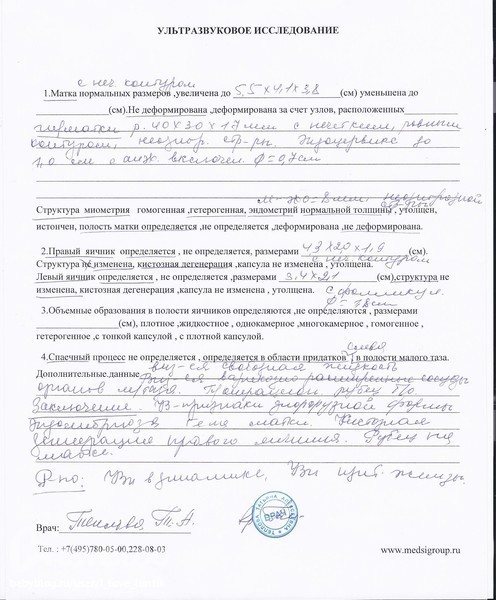 УЛЬТРАЗВУКОВОЕ ИССЛЕДОВАНИЕ
с неч. контуром
1.Матка нормальных размеров ,увеличена до 5,5 х 4,1 х 3,8 (см) уменьшена до
(см).Не деформирована ,деформирована за счет узлов, расположенных
р. 40х30х17 мм с нечетким, ровным
контуром, неоднор. стр-ры. до
1,0 см с включен. 0,7см
М-эхо=8мм неоднородной
Структура миометрия гомогенная ,гетерогенная, эндометрий нормальной толщины , утолщен,
истончен, полость матки определяется ,не определяется ,деформирована ,не деформирована.
2.Правый яичник определяется , не определяется, размерами 43х20х1,9 (см).
с неч. контуром
Структура не изменена, кистозная дегенерация ,капсула не изменена , утолщена.
Левый яичник определяется , не определяется ,размерами 3,4х21 (см),структура не
изменена, кистозная дегенерация ,капсула не изменена , утолщена. с фолликул.
3.Объемные образования в полости яичников определяются ,не определяются , размерами
(см), плотное ,жидкостное , однокамерное ,многокамерное , гомогенное ,
гетерогенное ,с тонкой капсулой , с плотной капсулой.
слева
4.Спаечный процесс не определяется , определяется в области придатков , в полости малого таза.
Дополнительные.данные свободная жидкость
Виз-ся варикозно расширенные сосуды
органов м/таза. рубец
Заключение. УЗ-признаки диффузной формы
эндометриоза тела матки. Кистозная
дегенерация правого яичника. Рубец на
матке.
Р-но: УЗИ в динамике, УЗИ щит. железы.
Врач: Т.А.
ВРАЧ
Тел. : +7(495)780-05-00,228-08-03
www.medsigroup.ru